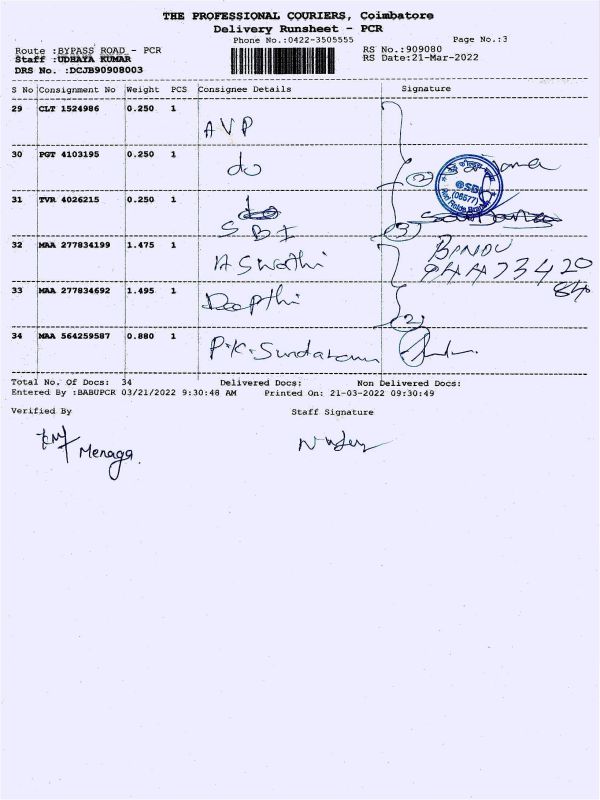 THE PROFESSIONAL COURIERS, Coimbatore
Delivery Runsheet - PCR
Phone No.:0422-3505555 Page No.:3
Route :BYPASS ROAD - PCR RS No.:909080
Staff :UDHAYA KUMAR RS Date:21-Mar-2022
DRS No. :DCJB90908003
S No Consignment No Weight PCS Consignee Details Signature
29 CLT 1524986 0.250 1 AVP
30 PGT 4103195 0.250 1 do (2)
@SBI
(06677)
31 TVR 4026215 0.250 1 SBI (3)
32 MAA 277834199 1.475 1 ASwathi BINDU
33 MAA 277834692 1.495 1 Deepthi (2)
34 MAA 564259587 0.880 1 P.K.Sundaram
Total No. Of Docs: 34 Delivered Docs: Non Delivered Docs:
Entered By :BABUPCR 03/21/2022 9:30:48 AM Printed On: 21-03-2022 09:30:49
Verified By Staff Signature
Menaga.